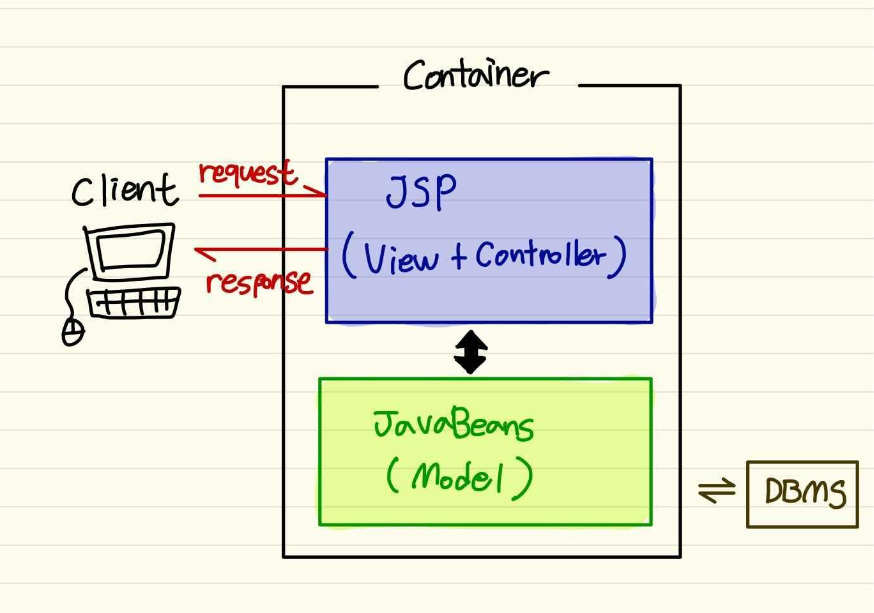 Container
Client
request
response
JSP
(View + Controller)
JavaBeans
(Model)
DBMS